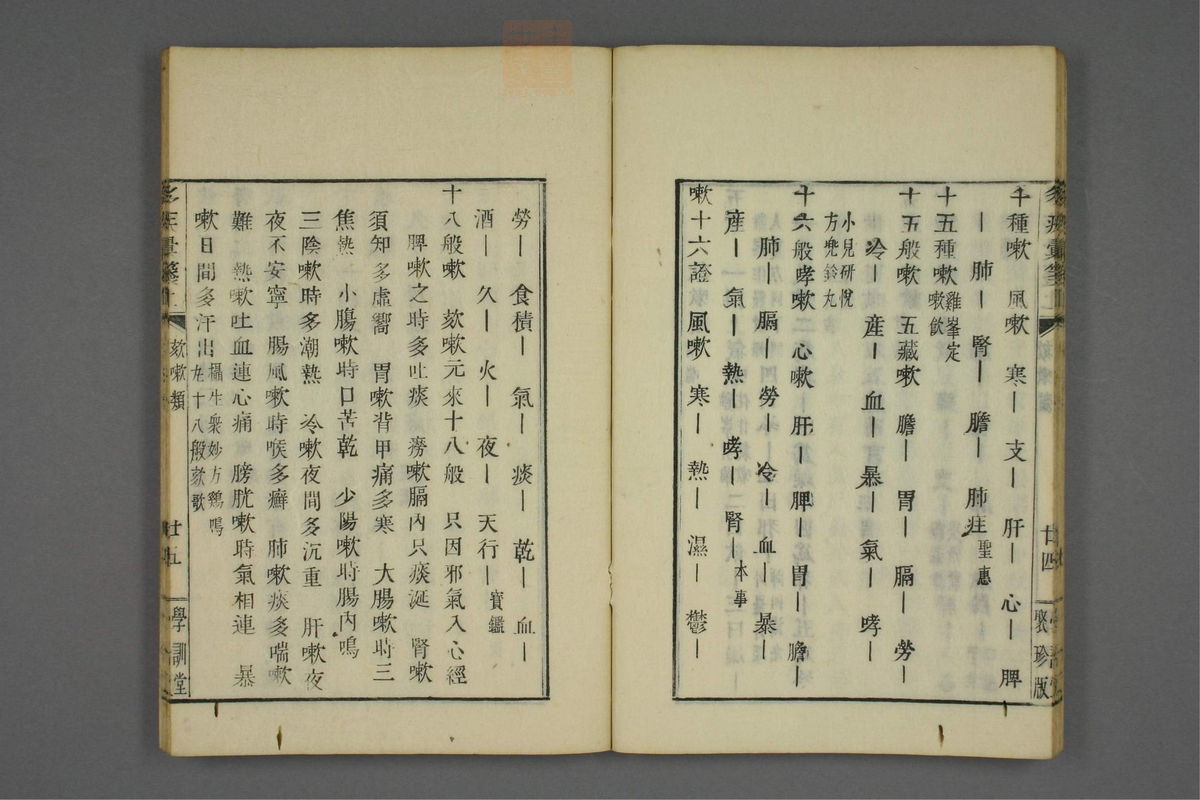 千種嗽　風嗽　寒｜　支｜　肝｜　心｜　脾
｜　肺｜　腎｜　膽｜　肺疰　聖惠
十五種嗽　雞峯定
嗽飲
十五般嗽　五藏嗽　膽｜　胃｜　膈｜　勞｜
冷｜　産｜　血｜　暴｜　氣｜　哮｜
小兒研悅
方兠鈴丸
十六般哮嗽　心嗽　肝｜　脾｜　胃｜　膽｜
肺｜　膈｜　勞｜　冷｜　血｜　暴｜
産｜　氣｜　熱｜　哮｜　腎｜　本事
嗽十六證　風嗽　寒｜　熱｜　濕｜　鬱｜
廿四
聚珍版
勞｜　食積｜　氣｜　痰｜　乾｜　血｜
酒｜　久｜　火｜　夜｜　天行｜　寶鑑
十八般嗽　欬嗽元來十八般　只因邪氣入心經
脾嗽之時多吐痰　癆嗽膈內只痰涎　腎嗽
須知多虛嚮　胃嗽背甲痛多寒　大腸嗽時三
焦熱　小膓嗽時口苦乾　少陽嗽時腸內鳴
三陰嗽時多潮熱　冷嗽夜間多沉重　肝嗽夜
夜不安寧　腸風嗽時喉多癬　肺嗽痰多喘嗽
難　熱嗽吐血連心痛　膀胱嗽時氣相連　暴
嗽日間多汗出　攝生衆妙方鷄鳴
丸十八般欬歌
欬嗽類
廿五
學訓堂